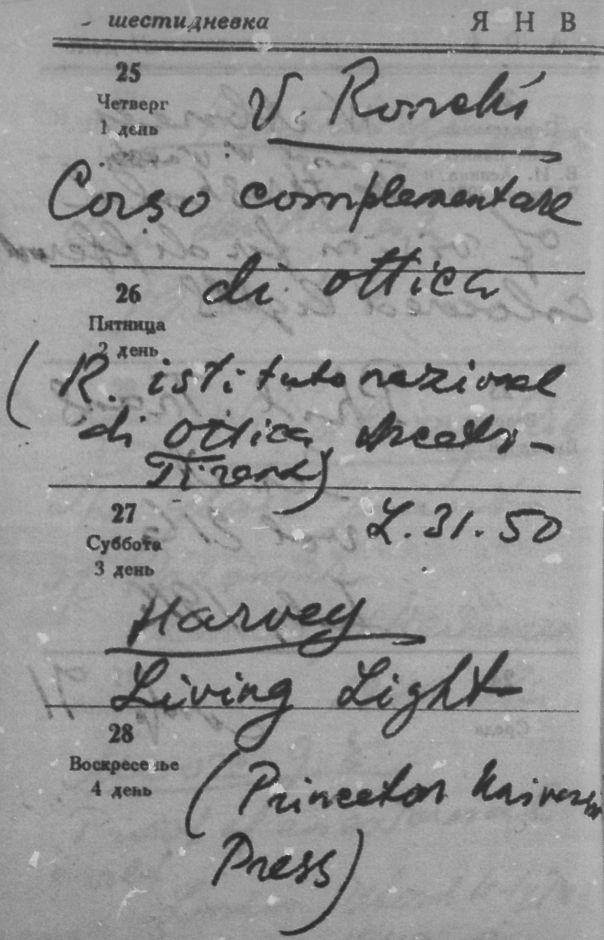 шестидневка ЯНВ
25
Четверг
1 день
V. Ronchi
Corso complementare
di ottica
26
Пятница
2 день
(R. istituto nazionale
di ottica, Arcetri-
Firenze)
27
Суббота
3 день
L. 31.50
Harvey
Living Light
28
Воскресенье
4 день
(Princeton Universi
Press)